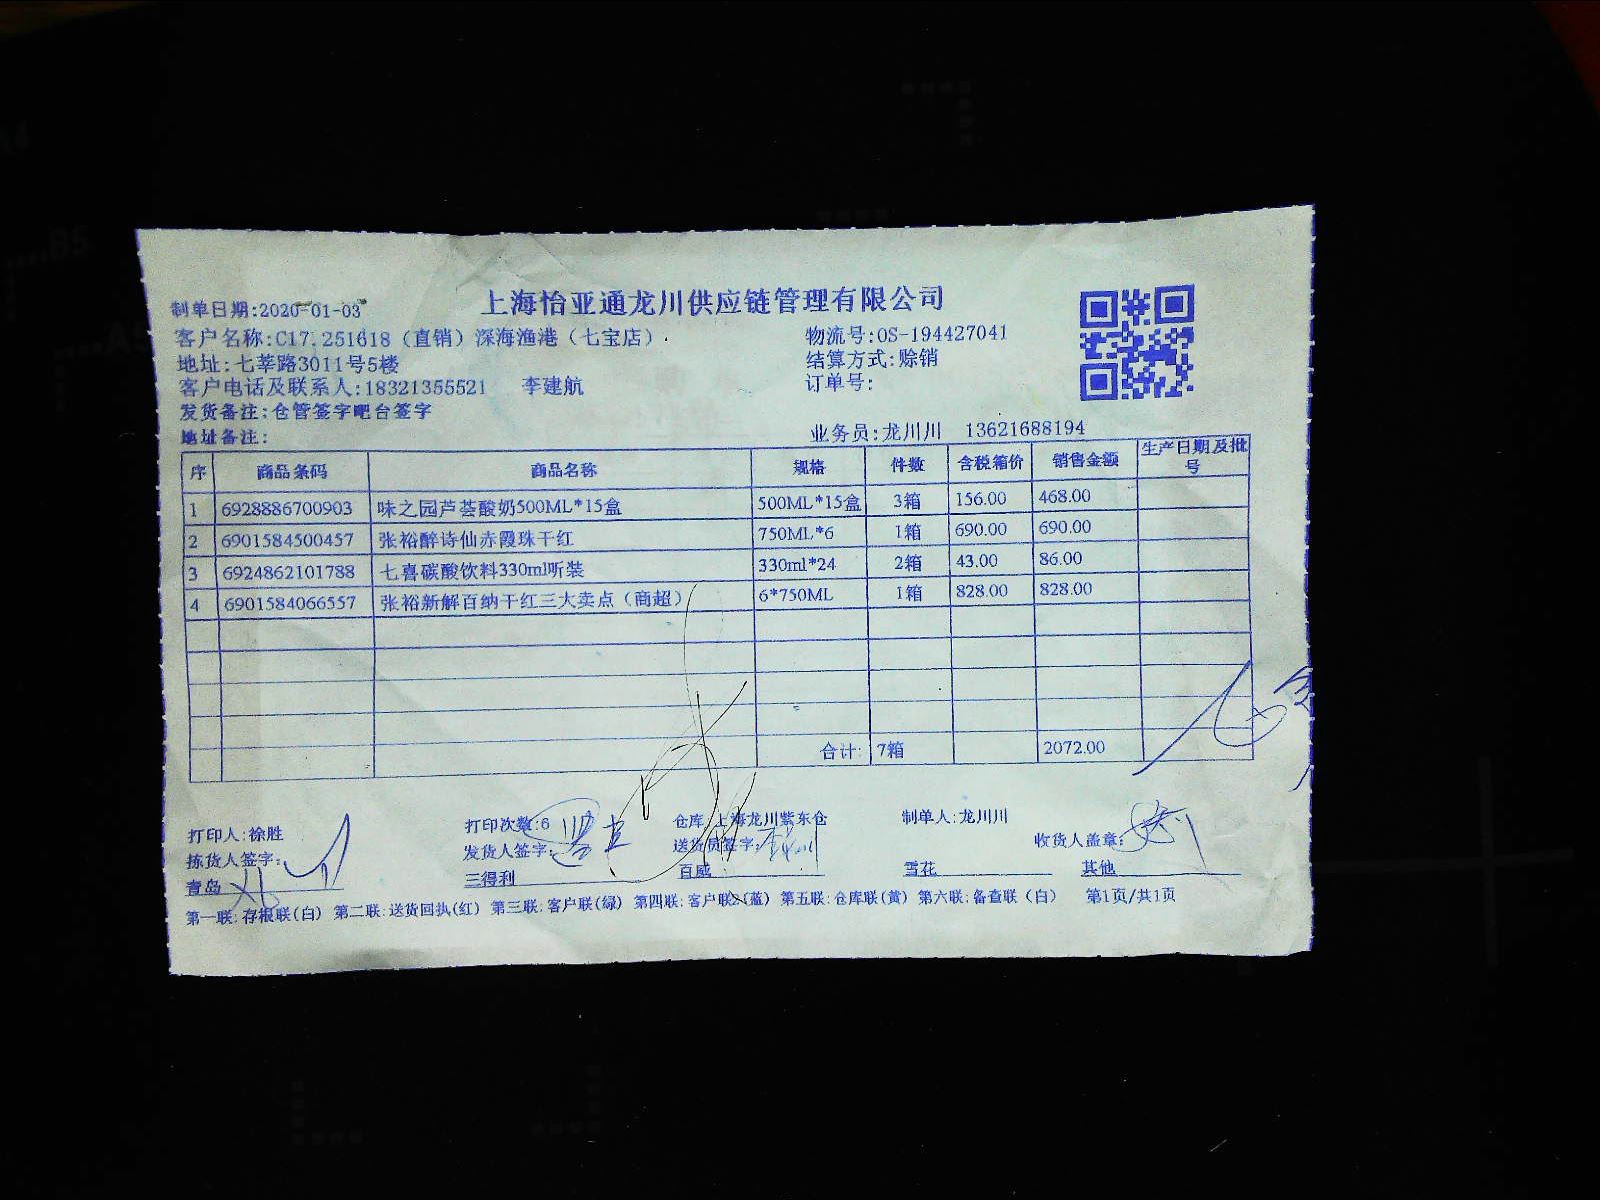 上海怡亚通龙川供应链管理有限公司
制单日期:2020-01-03
客户名称:C17.251618（直销）深海渔港（七宝店）. 物流号:OS-194427041
地址:七莘路3011号5楼 结算方式:赊销
客户电话及联系人:18321355521 李建航 订单号:
发货备注:仓管签字吧台签字
地址备注: 业务员:龙川川 13621688194
序 商品条码 商品名称 规格 件数 含税箱价 销售金额 生产日期及批号
1 6928886700903 味之园芦荟酸奶500ML*15盒 500ML*15盒 3箱 156.00 468.00
2 6901584500457 张裕醉诗仙赤霞珠干红 750ML*6 1箱 690.00 690.00
3 6924862101788 七喜碳酸饮料330ml听装 330ml*24 2箱 43.00 86.00
4 6901584066557 张裕新解百纳干红三大卖点（商超） 6*750ML 1箱 828.00 828.00
合计: 7箱 2072.00
打印人:徐胜 打印次数:6 仓库:上海龙川紫东仓 制单人:龙川川
拣货人签字: 发货人签字: 送货员签字: 收货人盖章:
青岛 三得利 百威 雪花 其他
第一联:存根联(白) 第二联:送货回执(红) 第三联:客户联(绿) 第四联:客户联2(蓝) 第五联:仓库联(黄) 第六联:备查联（白） 第1页/共1页